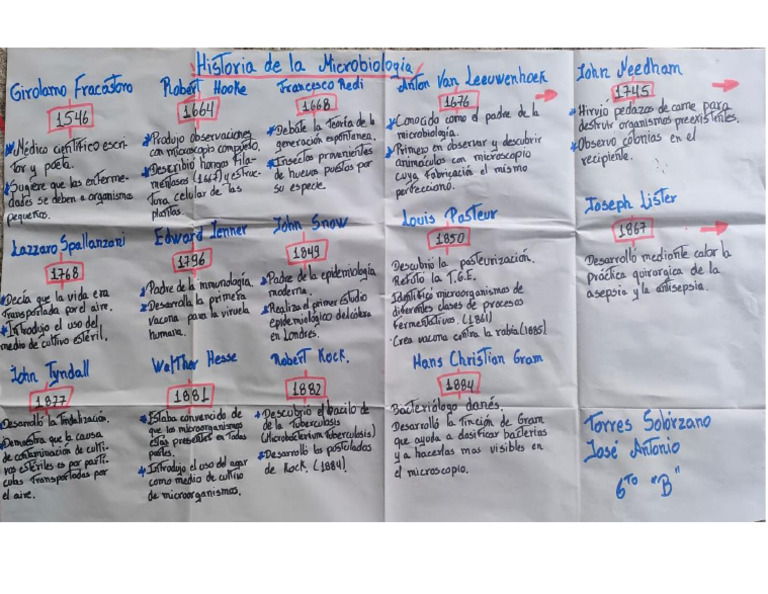 Historia de la Microbiología
Girolamo Fracastoro
1546
Médico científico escri-
tor y poeta.
Sugiere que las enferme-
dades se deben a organismos
pequeños.
Robert Hooke
1664
Produjo observaciones
con microscopio compuesto.
Describió hongos fila-
mentosos (1667) y estruc-
tura celular de las
plantas.
Francesco Redi
1668
Debate la Teoría de la
generación espontanea.
Insectos provenientes
de huevos puestos por
su especie.
Anton Van Leeuwenhoek
1676
Conocido como el padre de la
microbiología.
Primero en observar y descubrir
animaculos con microscopio
cuya fabricación el mismo
perfecciono.
John Needham
1745
Hirvió pedazos de carne para
destruir organismos preexistentes.
Observo colonias en el
recipiente.
Lazzaro Spallanzani
1768
Decía que la vida era
Transportada por el aire.
Introdujo el uso del
medio de cultivo estéril.
Edward Jenner
1796
Padre de la inmunología.
Desarrolla la primera
vacuna para la viruela
humana.
John Snow
1849
Padre de la epidemiología
moderna.
Realiza el primer estudio
epidemiológico del cólera
en Londres.
Louis Pasteur
1850
Descubrió la pasteurización.
Refuto la T.G.E.
Identificó microorganismos de
diferentes clases de procesos
fermentativos. (1861)
Crea vacuna contra la rabia (1885)
Joseph Lister
1867
Desarrolló mediante calor la
práctica quirurgica de la
asepsia y la antisepsia.
John Tyndall
1877
Desarrolló la Tindalización.
Demostro que la causa
de contaminación de culti-
vos estériles es por partí-
culas Transportadas por
el aire.
Walther Hesse
1881
Estaba convencido de
que los microorganismos
estas presentes en Todas
partes.
Introdujo el uso del agar
como medio de cultivo
de microorganismos.
Robert Kock.
1882
Descubrió el bacilo de
de la Tuberculosis
(Micobacterium Tuberculosis)
Desarrolló los postulados
de Kock. (1884)
Hans Christian Gram
1884
Bacteriólogo danés.
Desarrolla la Tinción de Gram
que ayuda a clasificar bacterias
y a hacerlas mas visibles en
el microscopio.
Torres Solórzano
José Antonio
6to "B"